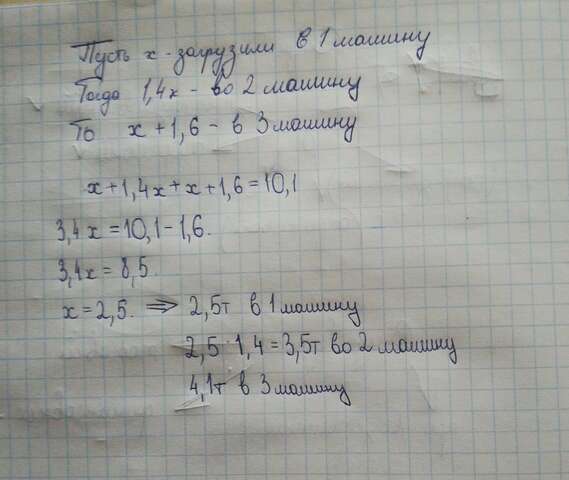 Пусть x - загрузили в 1 машину
Тогда 1,4x - во 2 машину
То x + 1,6 - в 3 машину
x + 1,4x + x + 1,6 = 10,1
3,4x = 10,1 - 1,6.
3,4x = 8,5.
x = 2,5. ⇒ 2,5т в 1 машину
2,5 · 1,4 = 3,5т во 2 машину
4,1т в 3 машину